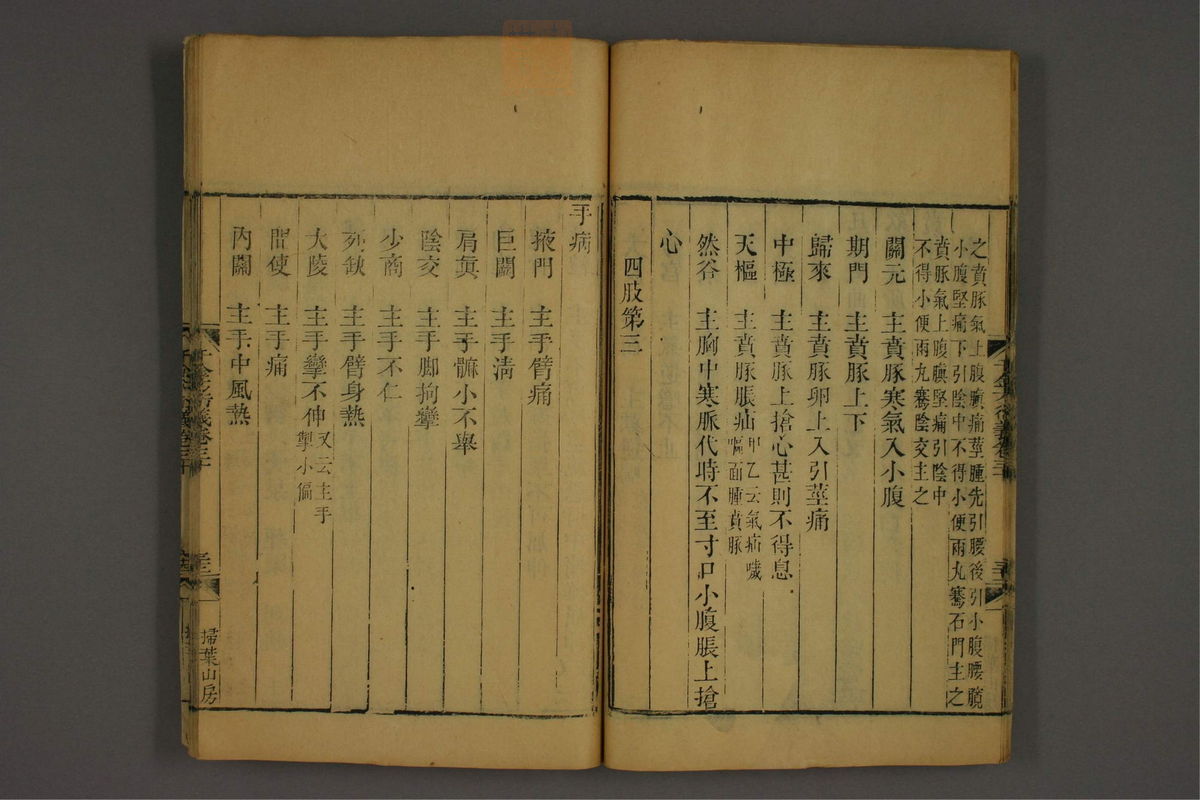 之賁豚氣上腹䐜痛莖腫先引腰後引小腹腰髖
小腹堅痛下引陰中不得小便兩丸騫石門主之
賁豚氣上腹䐜堅痛引陰中
不得小便兩丸騫陰交主之
關元　主賁豚寒氣入小腹
期門　主賁豚上下
歸來　主賁豚卵上入引莖痛
中極　主賁豚上搶心甚則不得息
天樞　主賁豚脹疝甲乙云氣疝噦嘔面腫賁豚
然谷　主胸中寒脈代時不至寸口小腹脹上搶
心
四肢第三
手病
掖門　主手臂痛
巨闕　主手清
肩貞　主手髍小不舉
陰交　主手脚拘攣
少商　主手不仁
死缺　主手臂身熱
大陵　主手攣不伸又云主手掣小偏
間使　主手痛
內關　主手中風熱
千金方衍義卷三十
掃葉山房